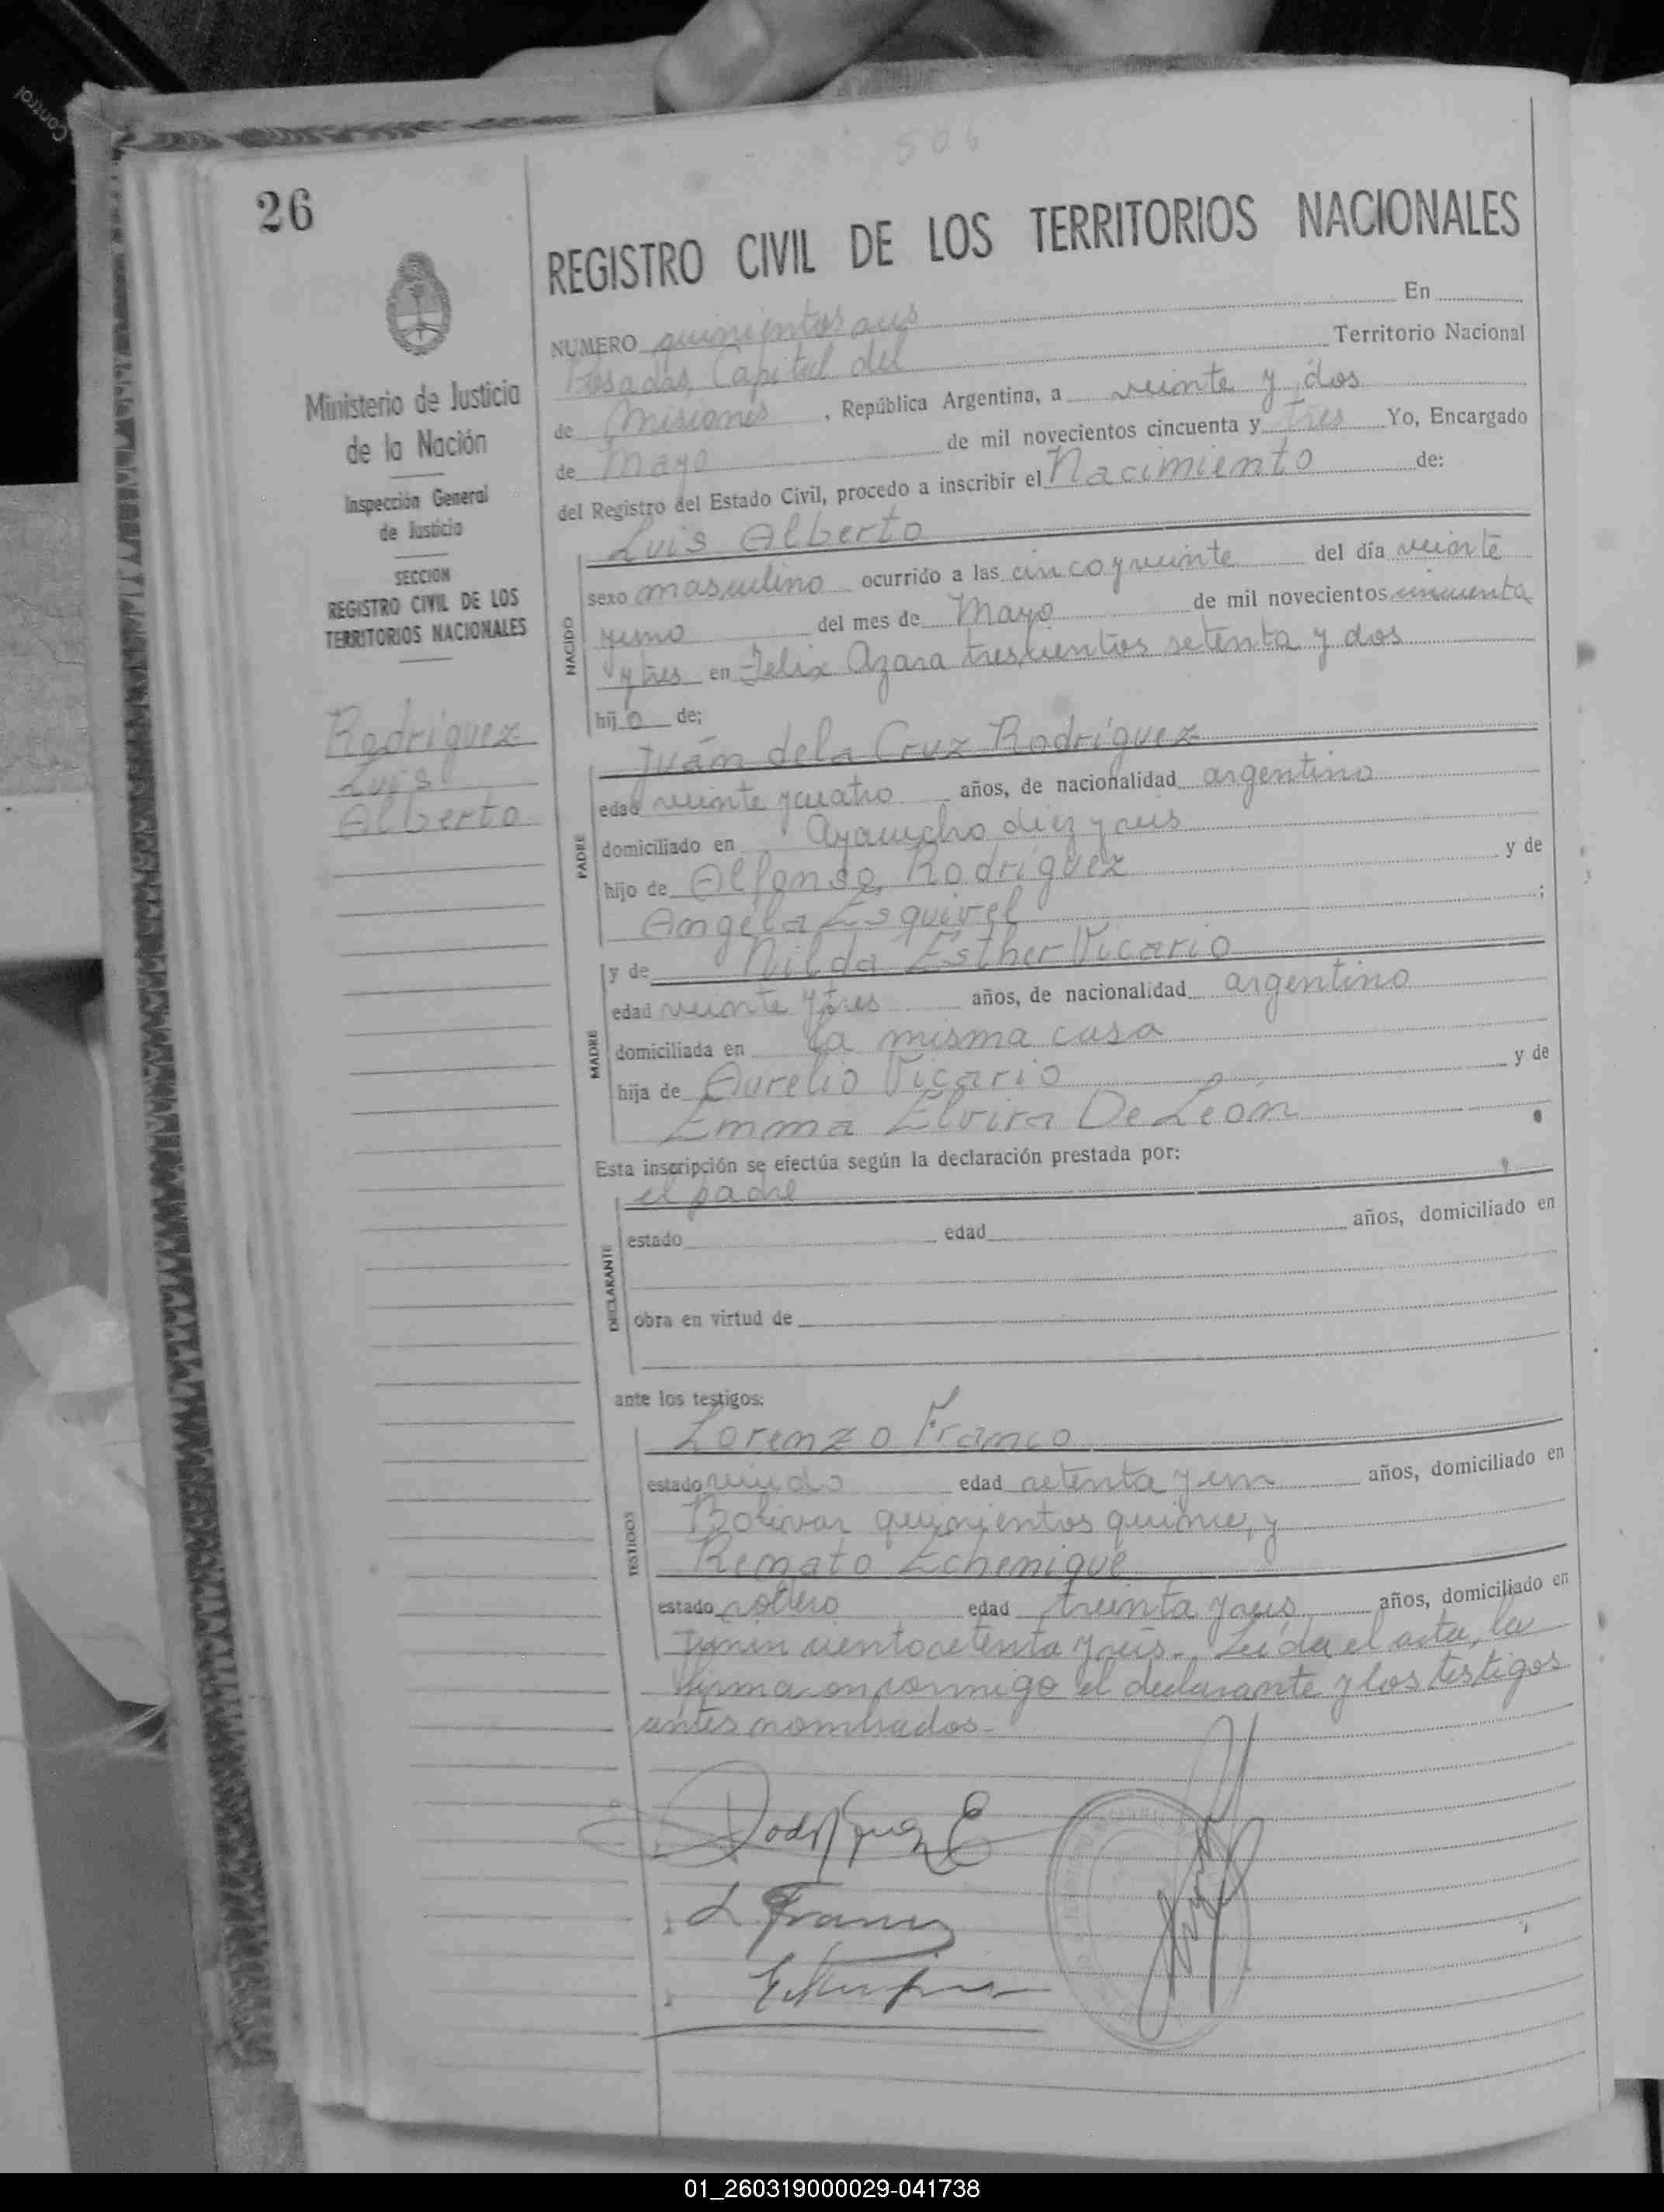 506
26
REGISTRO CIVIL DE LOS TERRITORIOS NACIONALES
NUMERO quinientos seis En
Posadas, Capital del Territorio Nacional
de Misiones, República Argentina, a veinte y dos
de Mayo de mil novecientos cincuenta y tres Yo, Encargado
del Registro del Estado Civil, procedo a inscribir el Nacimiento de:
Ministerio de Justicia
de la Nación
Inspección General
de Justicia
SECCION
REGISTRO CIVIL DE LOS
TERRITORIOS NACIONALES
Rodríguez
Luis
Alberto
NACIDO
Luis Alberto
sexo masculino ocurrido a las cinco y veinte del día veinte
yuno del mes de Mayo de mil novecientos cincuenta
y tres en Felix Azara trescientos setenta y dos
hijo de;
PADRE
Juán dela Cruz Rodríguez
edad veinte ycuatro años, de nacionalidad argentino
domiciliado en Ayacucho diez y seis
hijo de Alfonso Rodríguez y de
Angela Esquivel;
MADRE
y de Nilda Esther Vicario
edad veinte ytres años, de nacionalidad argentino
domiciliada en la misma casa
hija de Aurelio Vicario y de
Emma Elvira De León
Esta inscripción se efectúa según la declaración prestada por:
DECLARANTE
el padre
estado edad años, domiciliado en
obra en virtud de
ante los testigos:
TESTIGOS
Lorenzo Franco
estado viudo edad setenta y un años, domiciliado en
Bolivar quinientos quince, y
Renato Echenique
estado soltero edad treinta y seis años, domiciliado en
Junin ciento setenta y seis. Leída el acta, la
firma conmigo el declarante y los testigos
antes nombrados.
Rodríguez E
L Franco
01_260319000029-041738